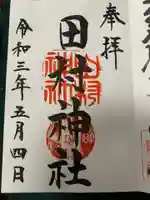 奉拝
田村神社
令和三年五月四日